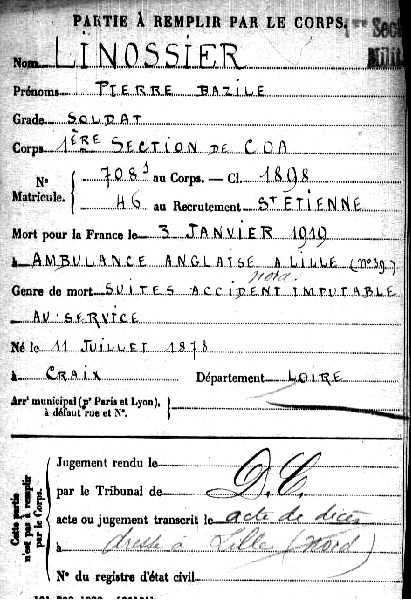 PARTIE À REMPLIR PAR LE CORPS.
Nom LINOSSIER
Prénoms PIERRE BAZILE
Grade SOLDAT
Corps 1ÈRE SECTION DE COA
N° Matricule. { 7083 au Corps. — Cl. 1898
46 au Recrutement ST ETIENNE
Mort pour la France le 3 JANVIER 1919
à AMBULANCE ANGLAISE A LILLE (N°39.)
nord.
Genre de mort SUITES ACCIDENT IMPUTABLE
AU SERVICE
Né le 11 JUILLET 1878
à CRAIX Département LOIRE
Arrt municipal (pr Paris et Lyon), à défaut rue et N°.
Cette partie n'est pas à remplir par le Corps.
Jugement rendu le
par le Tribunal de D.C.
acte ou jugement transcrit le acte de décès
à dressé à Lille (Nord)
N° du registre d'état civil